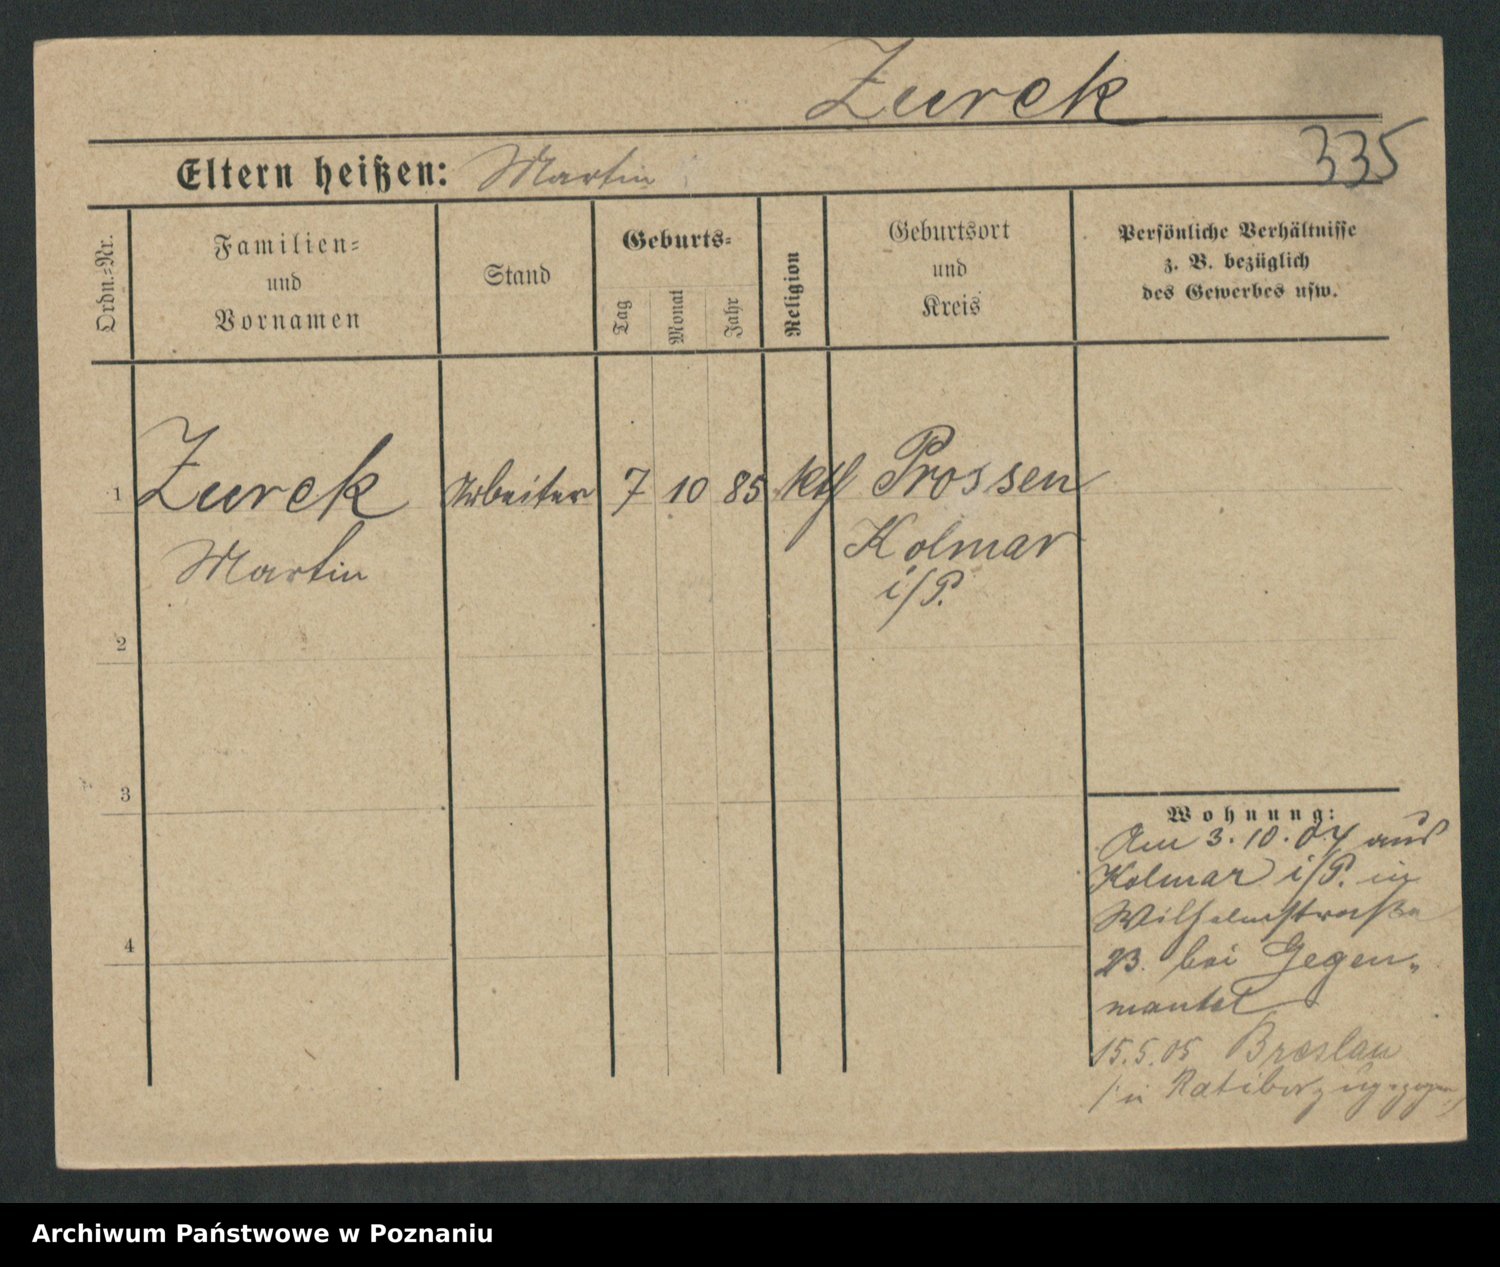 Zurek
335
Eltern heißen: Martin
Ordn.=Nr.
Familien=
und
Vornamen
Stand
Geburts=
Tag
Monat
Jahr
Religion
Geburtsort
und
Kreis
Persönliche Verhältnisse
z. B. bezüglich
des Gewerbes usw.
1 Zurek Arbeiter 7 10 85 kth Prossen
Martin
Kolmar
i/P.
2
3
4
Wohnung:
Am 3.10.04 aus
Kolmar i/P. in
Wilhelmstraße
23. bei Gegen-
mantel
15.5.05 Breslau
/in Ratibor zugezogen/
Archiwum Państwowe w Poznaniu